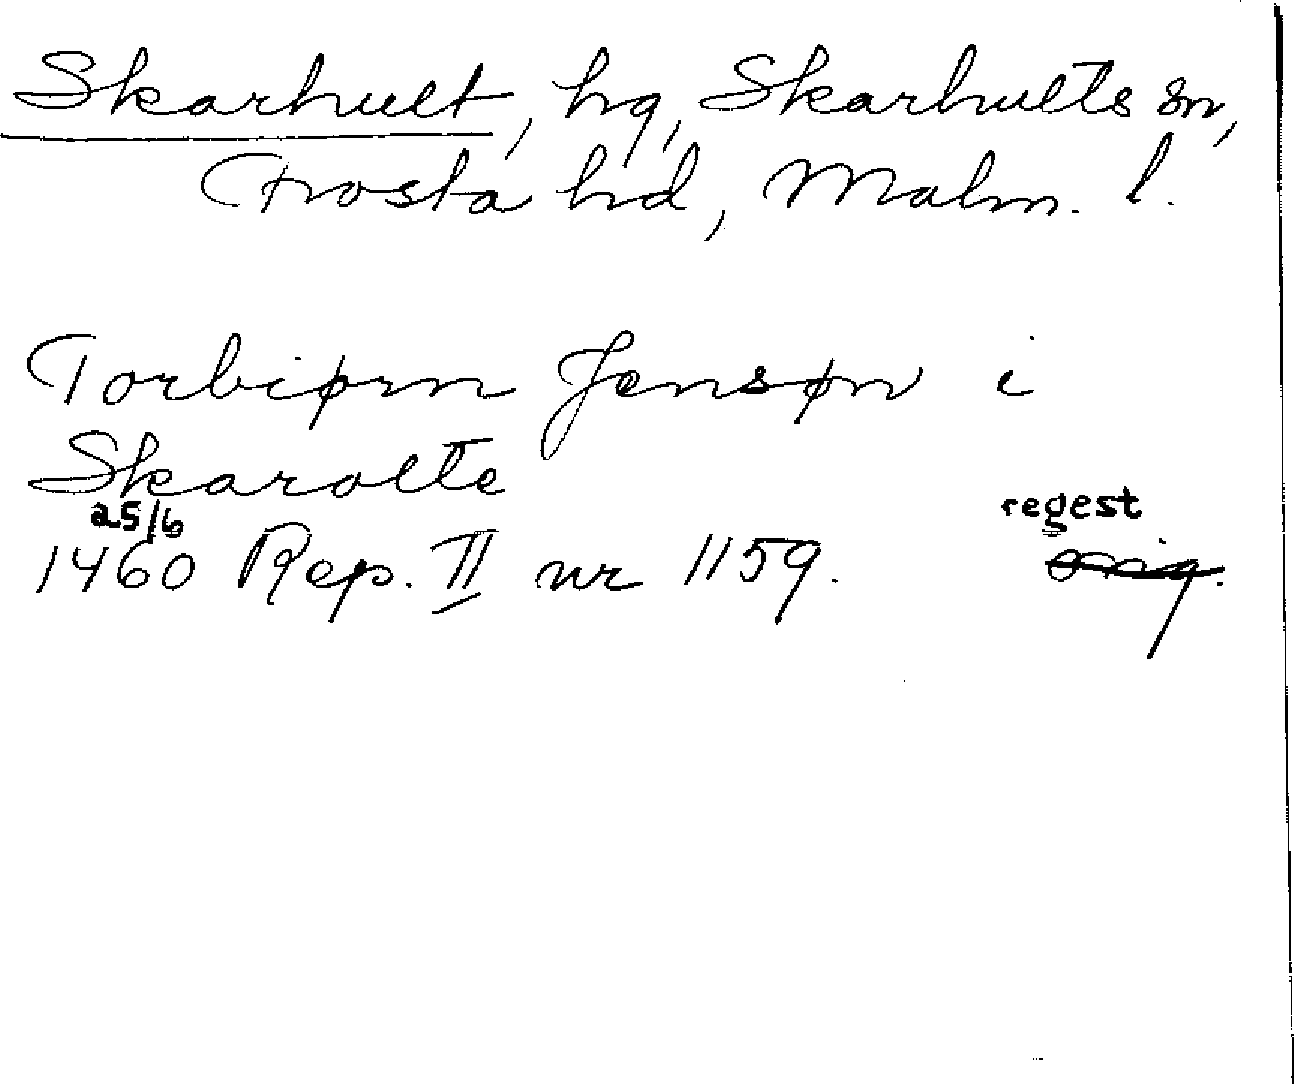 Skarhult, hg, Skarhults sn,
Frosta hd, Malm. l.
Torbiørn Jensøn i
Skarolte
25/6 regest
1460 Rep. II nr 1159. orig.